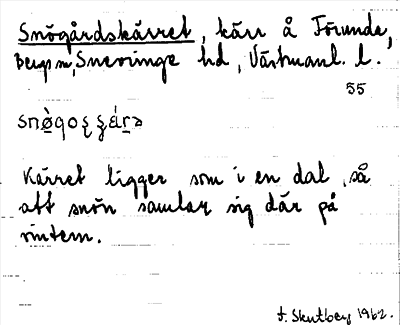 Snögårdskärret, kärr å Förunda,
Bergs sn, Snevringe hd, Västmanl. l.
55
Kärret ligger som i en dal, så
att snön samlar sig där på
vintern.
J. Skutberg 1962.